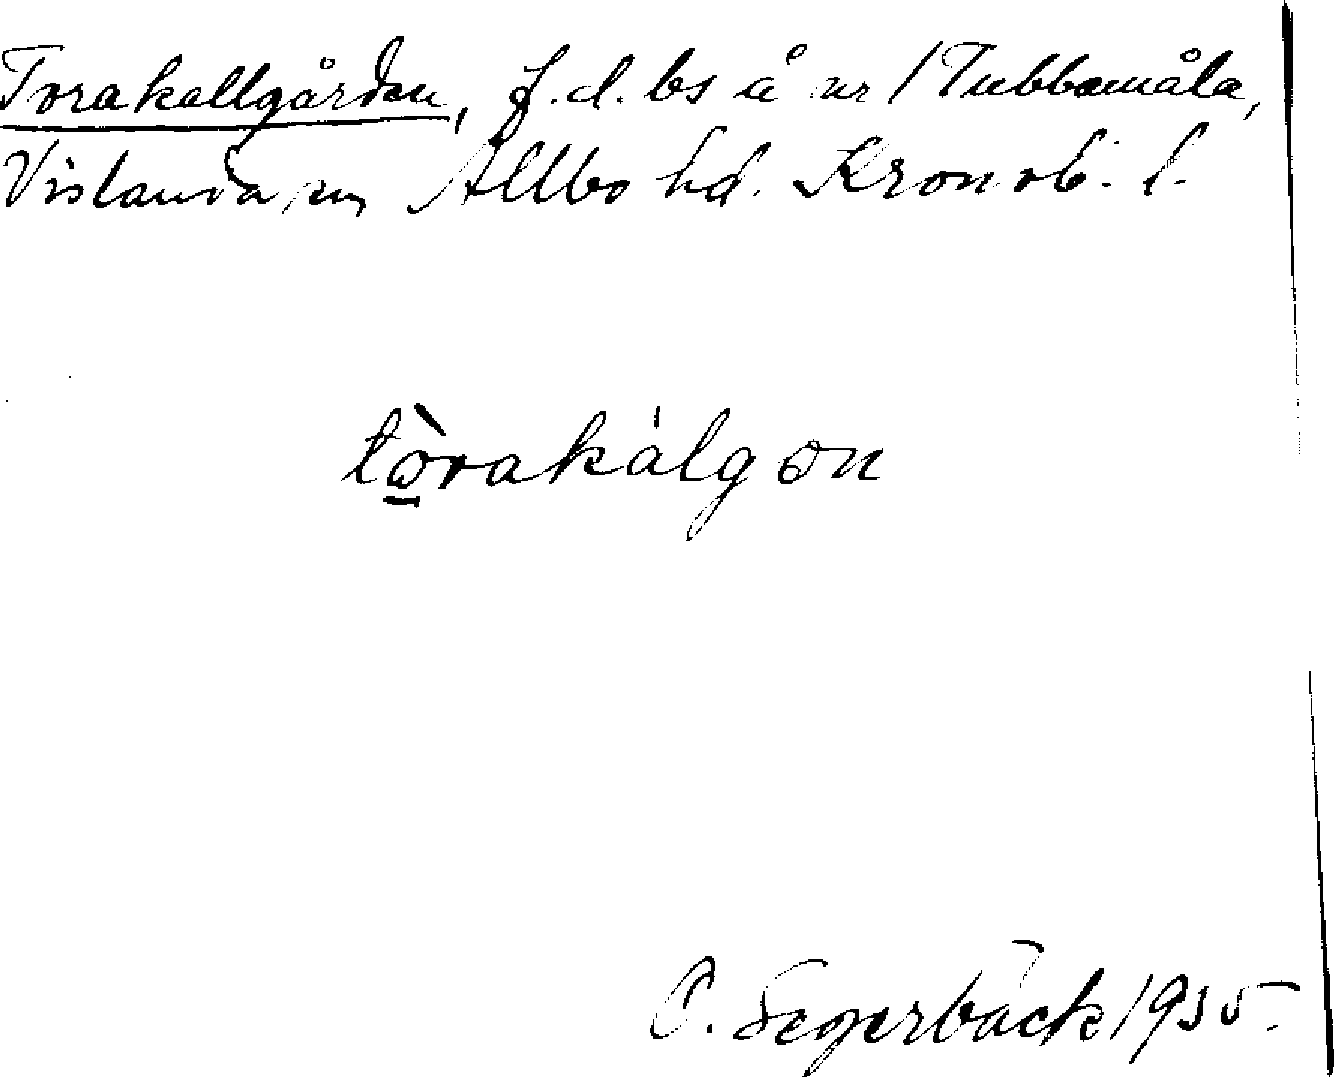 Torakallgården, f.d. bs å nr 1 Tubbamåla,
Vislanda sn Allbo hd. Kronob. l.
tòrakálgən
O. Segerbäck 1935.